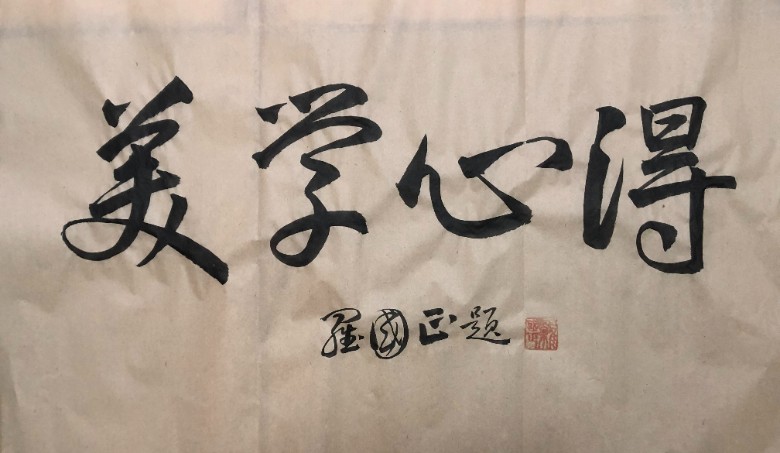 美学心得
羅國正题